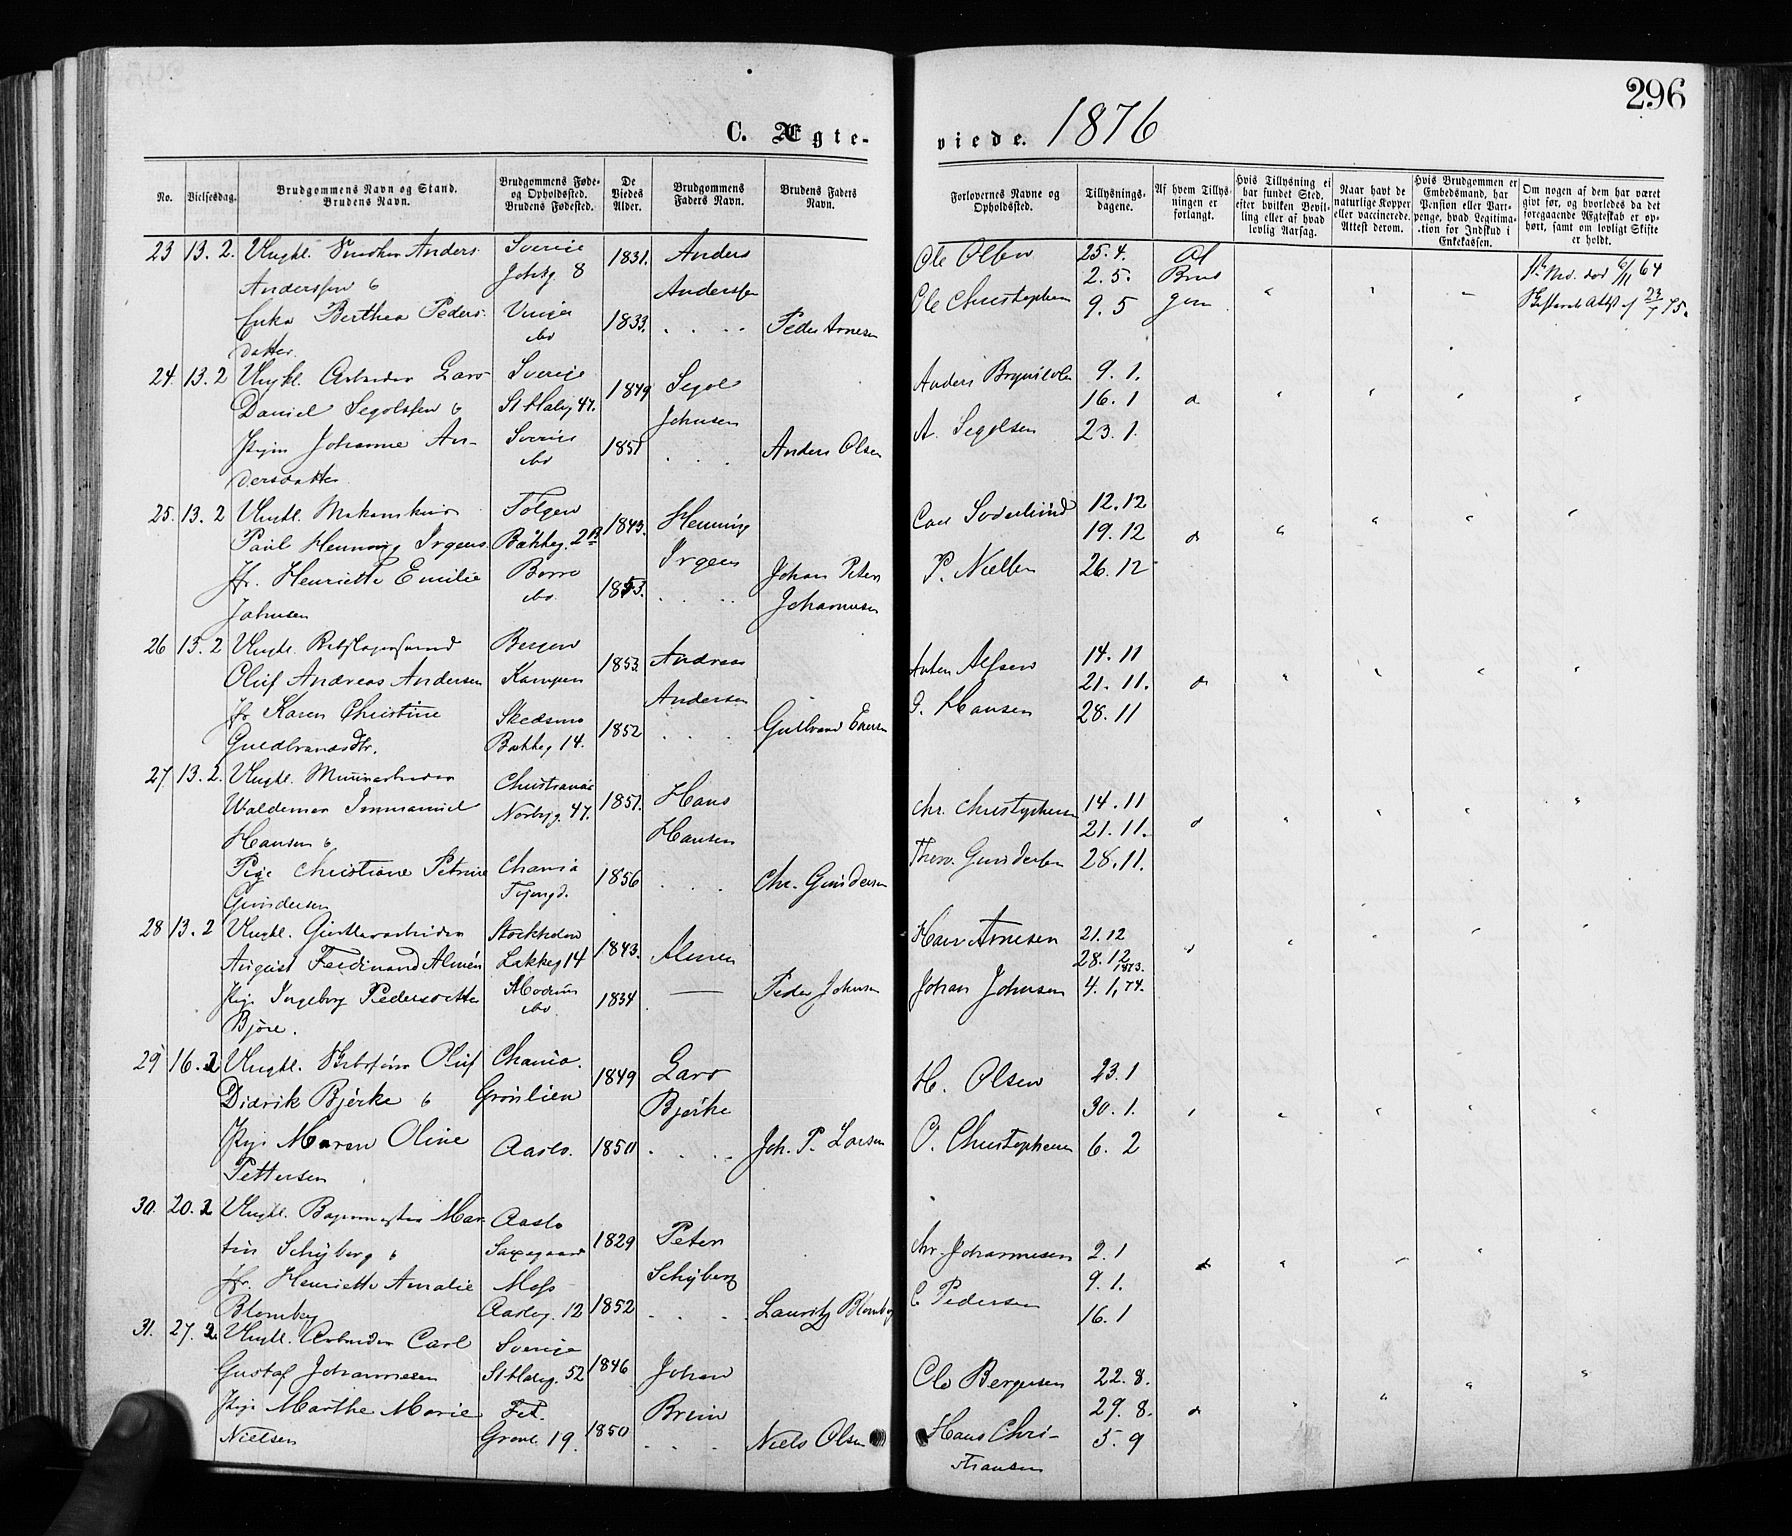 296
C. Ægte-
viede. 1876
No.
Vielsesdag.
Brudgommens Navn og Stand.
Brudens Navn.
Brudgommens Føde-
og Opholdssted.
Brudens Fødested.
De
Viedes
Alder.
Brudgommens
Faders Navn.
Brudens Faders
Navn.
Forlovernes Navne og
Opholdssted.
Tillysnings-
dagene.
Af hvem Tillys-
ningen er
forlangt.
Hvis Tillysning ei
har fundet Sted,
efter hvilken Bevil-
ling eller af hvad
lovlig Aarsag.
Naar havt de
naturlige Kopper
eller vaccinerede.
Attest derom.
Hvis Brudgommen er
Embedsmand, har
Pension eller Vart-
penge, hvad Legitima-
tion for Indskud i
Enkekassen.
Om nogen af dem har været
givt før, og hvorledes da det
foregaaende Ægteskab er op-
hørt, samt om lovligt Skifte
er holdt.
23 13. 2. Ungkl. Anders Sverige 1831. Anders Ole Olsen 25. 4.
Anderssen 8 Anderssen 2. 5.
Berthea Peders- 1833. Peder Arnesen Ole Christophersen 9. 5
datter
24. 13. 2 Ungkl. Arbeider Lars Sverige 1849 Segol Anders 9. 1.
Daniel Segolssen St Halvg 47. Johnsen 16. 1
Johanne An- Sverige 1851 Anders Olsen A. Segolsen 23. 1.
dersdatter
25. 13. 2 Ungkl. 1843. Henning Carl Söderlund 12. 12
Paul Henning Irgens. Bakkeg. Irgens 19. 12
Jfr. Henriette Emilie Borre 1853. Johan Peter P. Nielsen 26. 12
Johnsen Johannesen
26 13. 2 Ungkl. Bergen 1853. Andreas Anton Alfsen 14. 11
Oluf Andreas Andersen Kampen Andersen 21. 11.
Jfr. Karen Christine Skedsmo 1852 Gulbrand I. Hansen 28. 11
Guldbrandsdtr. Bakkeg 14.
27. 13. 2. Ungkl. Christiania 1851. Hans Chr. Christophersen 14. 11
Waldemar Immanuel Norbyg. 47. Hansen 21. 11.
Hansen
Pige Christiane Petrine Chania 1856 Chr. Gundersen Gundersen 28. 11.
Gundersen
28 13. 2 Ungkl. Stockholm 1843. Almen Hans Arnesen 21. 12
August Ferdinand Almén Lakkeg 14 28. 12
1873.
Pige Ingeborg Pedersdatter Modum 1834 — Peder Johnsen Johan Johnsen 4. 1, 74.
Bjøre.
29 16. 2 Ungkl. Oluf Chania. 1849 Lars H. Olsen 23. 1
Didrik Bjerke Grønlien Bjerke 30. 1.
Pige Maren Oline Aaslo. 1850 Joh. P. Larsen O. Christophersen 6. 2
Pettersen
30. 20. 2 Ungkl. Bagermester Mar- Aaslo 1829 Peter Chr. Johannesen 2. 1
tin Schyberg Saxegaard Schyberg 9. 1.
Jfr. Henriette Amalie Moss 1852 Lauritz Blomberg C Pedersen 16. 1
Blomberg Aaslog. 12
31. 27. 2. Ungkl. Arbeider Carl Sverige 1846 Johan Ole Bergersen 22. 8.
Gustaf Johannesen St Halvg. 52 29. 8.
Pige Marthe Marie Fet. 1850 Niels Olsen Hans Chri- 5. 9
Nielsen Grønl. 19. stiansen